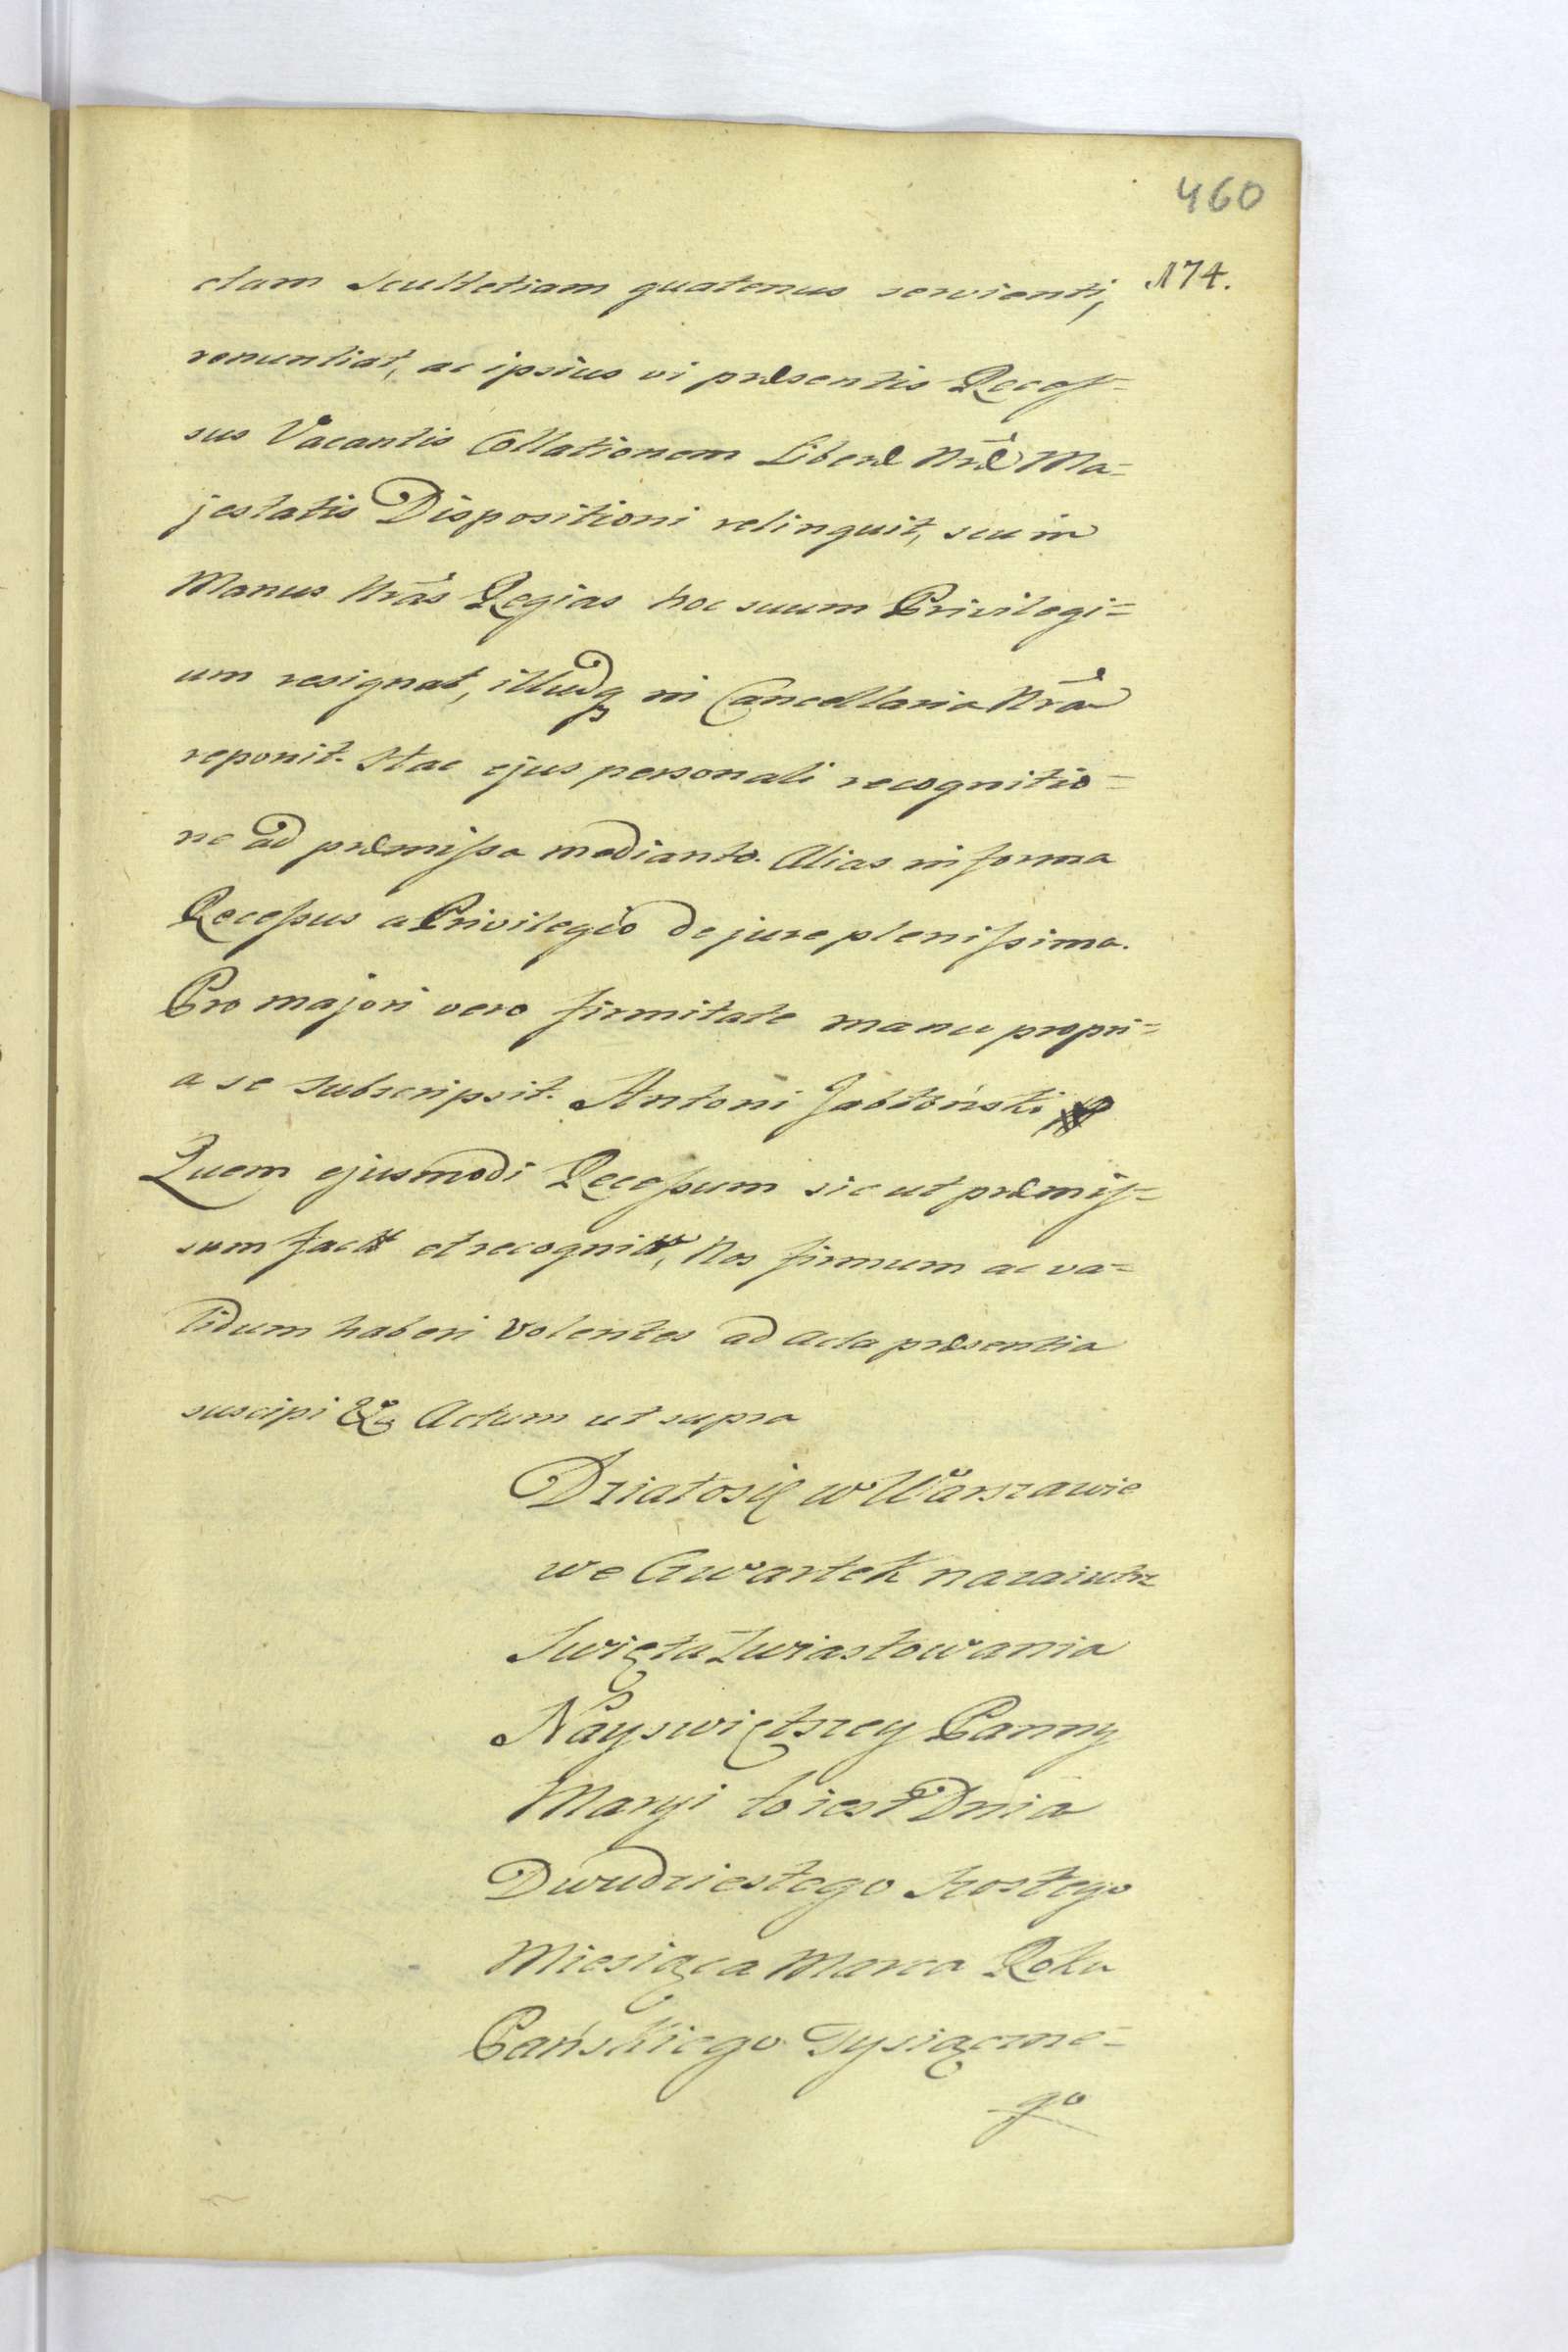 460
174.
ctam Scultetiam quatenus servienti,
renuntiat, ac ipsius vi præsentis Reces=
sus Vacantis Collationem Liberæ Nræ Ma=
jestatis Dispositioni relinquit, seu in
Manus Nras Regias hoc suum Privilegi=
um resignat, illudq in Cancellaria Nra
reponit. Hac ejus personali recognitio=
ne ad præmissa mediante. Alias in forma
Recessus a Privilegio de jure plenissima.
Pro majori vero firmitate manu propri=
a se subscripsit. Antoni Jabłoński
Quem ejusmodi Recessum sic ut præmis=
sum et Nos firmum ac va=
lidum haberi volentes ad Acta præsentia
suscipi &c Actum ut supra
Działosię w Warszawie
we Czwartek nazaiutrz
Swięta Zwiastowania
Nayswiętszey Panny
Maryi to iest Dnia
Dwudziestego Szostego
Miesiąca Marca Roku
Pańskiego Tysiączne=
go